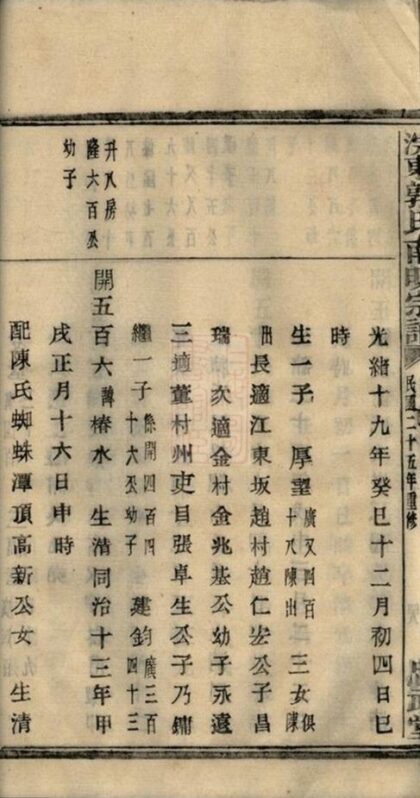 東郭氏南明宗譜
民國二十五年重修
光緒十九年癸巳十二月初四日巳
時
生一子厚望廣又四百十八陳出三女俱陳
出長適江東坂趙村趙仁宏公子昌
瑞次適金村金兆基公幼子永遠
三適董村州吏目張卓生公子乃鏞
繼一子係開四百四十六丞幼子建鈞廣三百四十三
升八房
隆六百丞
幼子
開五百六諱椿水生清同治十三年甲
戌正月十六日申時
配陳氏蜘蛛潭頂高新公女生清